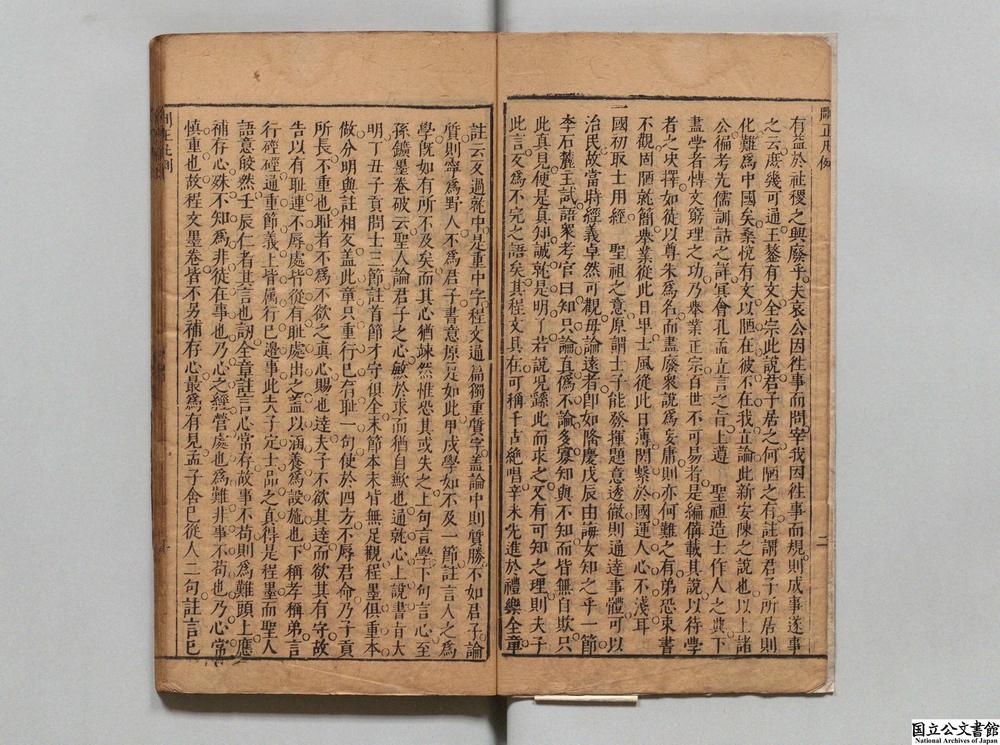 刪正凡例
有益於社稷之興廢乎夫哀公因往事而問宰我因往事而規則成事遂事
之云庶幾可通王鏊有文全宗此說君子居之何陋之有註謂君子所居則
化難為中國矣桑悅有文以陋在彼不在我立論此新安陳之說也以上諸
公徧考先儒訓詁之詳冥會孔孟立言之旨上遵 聖祖造士作人之典下
盡學者博文窮理之功乃舉業正宗百世不可易者是編備載其說以待學
者之抉擇如徒以尊朱為名而盡廢眾說為妄庸則亦何難之有弟恐束書
不觀固陋就簡舉業從此日卑士風從此日薄關繫於國運人心不淺耳
一國初取士用經 聖祖之意原謂士子能發揮題意透徹則通達事體可以
治民故當時經義卓然可觀毋論遠者卽如隆慶戊辰由誨女知之乎一節
李石麓主試語眾考官曰知只論真僞不論多寡知與不知而皆無自欺只
此真見便是真知誠就是明了若說兄繇此而求之又有可知之理則夫子
此言反為不完之語矣其程文具在可稱千古絶唱辛未先進於禮樂全章
二
註云文過就中是重中字程文通篇獨重質字蓋論中則質勝不如君子論
質則寧為野人不為君子書意原是如此甲戌學如不及一節註言人之為
學旣如有所不及矣而其心猶竦然惟恐其或失之上句言學下句言心至
孫鑛墨卷破云聖人論君子之心敏於求而猶自歉也通就心上說書旨大
明丁丑子貢問士三節註首節才守俱全末節本末皆無足觀程墨俱重本
做分明與註相反蓋此章只重行已有耻一句使於四方不辱君命乃子貢
所長不重也耻者不為不欲之真心賜也達夫子不欲其達而欲其有守故
告以有耻連不辱處皆從有耻處出之蓋以涵養為設施也下稱孝稱弟言
行硜硜通重節義上皆屬行已邊事此夫子定士品之真得是程墨而聖人
語意皎然壬辰仁者其言也訒全章註言心常存故事不苟則為難頭上應
補存心殊不知為非徒在事也乃心之經營處也為難非事不苟也乃心常
慎重也故程文墨卷皆不另補存心最為有見孟子舍已從人二句註言已
国立公文書館
National Archives of Japan